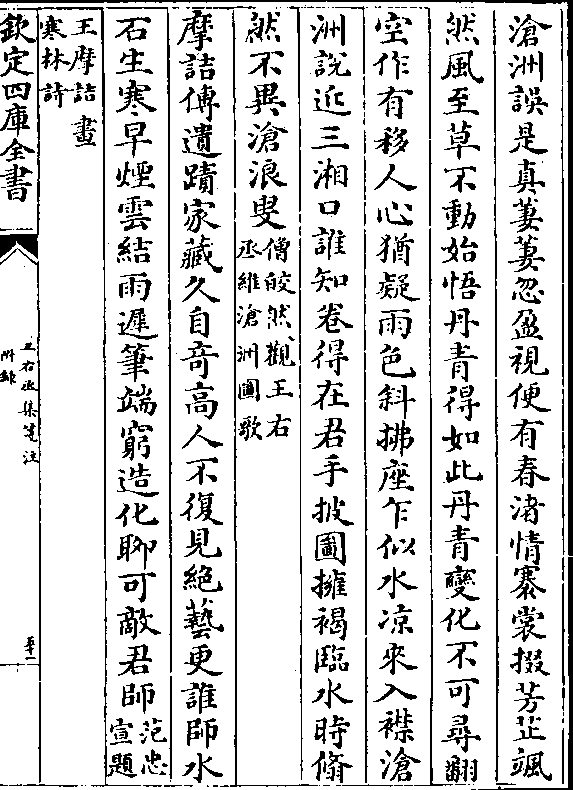 滄洲誤是真萋萋忽盈視便有春渚情褰裳掇芳芷颯
然風至草不動始悟丹青得如此丹青變化不可尋翻
空作有移人心猶疑雨色斜拂座乍似水凉來入襟滄
洲説近三湘口誰知卷得在君手披圖擁褐臨水時翛
然不異滄浪叟僧皎然觀王右
丞維滄洲圖歌
摩詰傳遺蹟家藏久自竒高人不復見絶藝更誰師水
石生寒早煙雲結雨遲筆端窮造化聊可敵君師范忠
宣題
王摩詰畫
寒林詩
欽定四庫全書
王右丞集箋注
附録